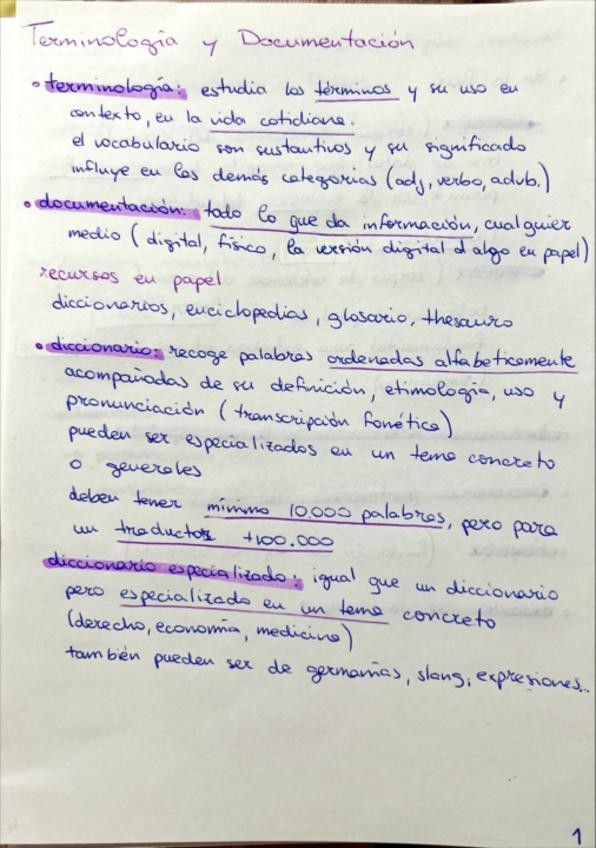 Terminología y Documentación
• terminología: estudia los términos y su uso en
contexto, en la vida cotidiana.
el vocabulario son sustantivos y su significado
influye en las demás categorías (adj, verbo, advb.)
• documentación: todo lo que da información, cualquier
medio (digital, físico, la versión digital d algo en papel)
recursos en papel
diccionarios, enciclopedias, glosario, thesauro
• diccionario: recoge palabras ordenadas alfabeticamente
acompañadas de su definición, etimología, uso y
pronunciación (transcripción fonética)
pueden ser especializados en un tema concreto
o generales
deben tener mínimo 10.000 palabras, pero para
un traductor +100.000
diccionario especializado: igual que un diccionario
pero especializado en un tema concreto
(derecho, economía, medicina)
también pueden ser de germanías, slang, expresiones...
1